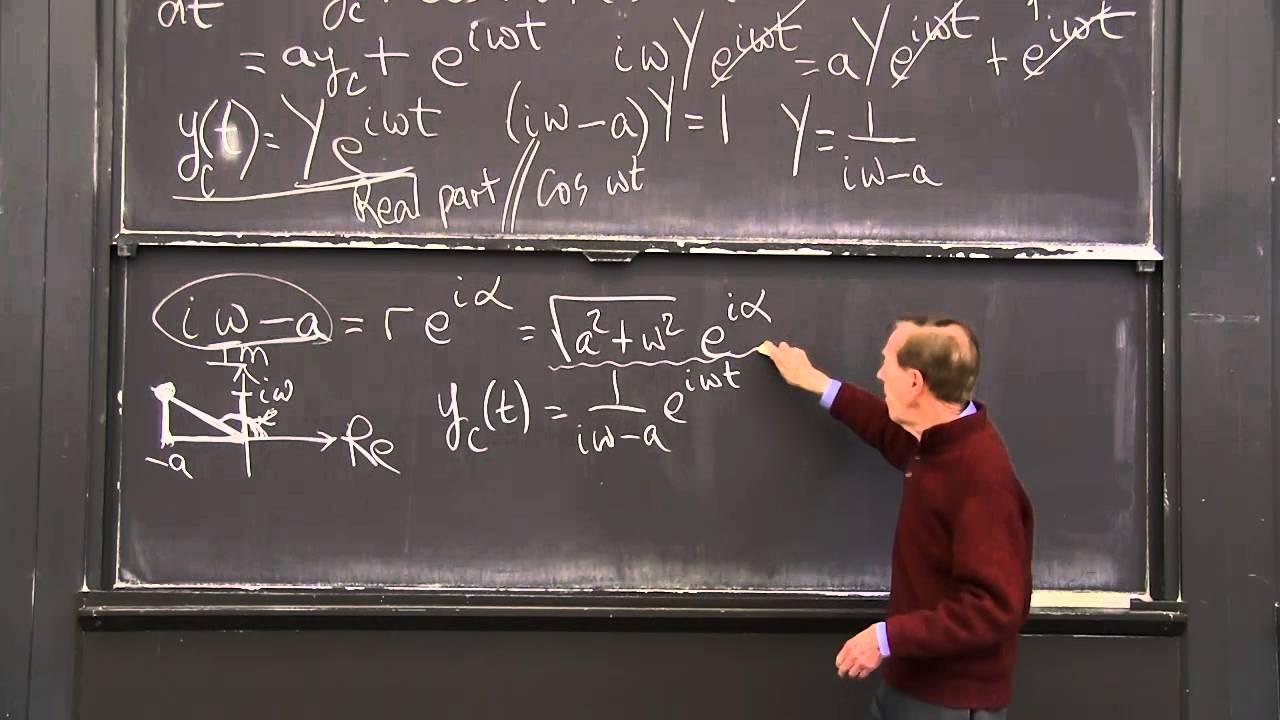 dt
= ay_c + e^{iωt} iωYe^{iωt} = aYe^{iωt} + e^{iωt} 1
y_c(t) = Ye^{iωt} (iω-a)Y=1 Y = 1/(iω-a)
Real part // cos ωt
iω-a = re^{iα} = √(a²+ω²) e^{iα}
Im
iω
y_c(t) = 1/(iω-a) e^{iωt}
Re
-a